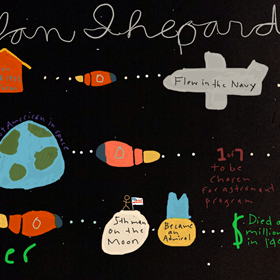 lan Shepard
Flew in the Navy
American in space
1 of 7
to be
chosen
for astronaut
program
5th man
on the
Moon
Became
an
Admiral
$
Died a
million
in 19
er